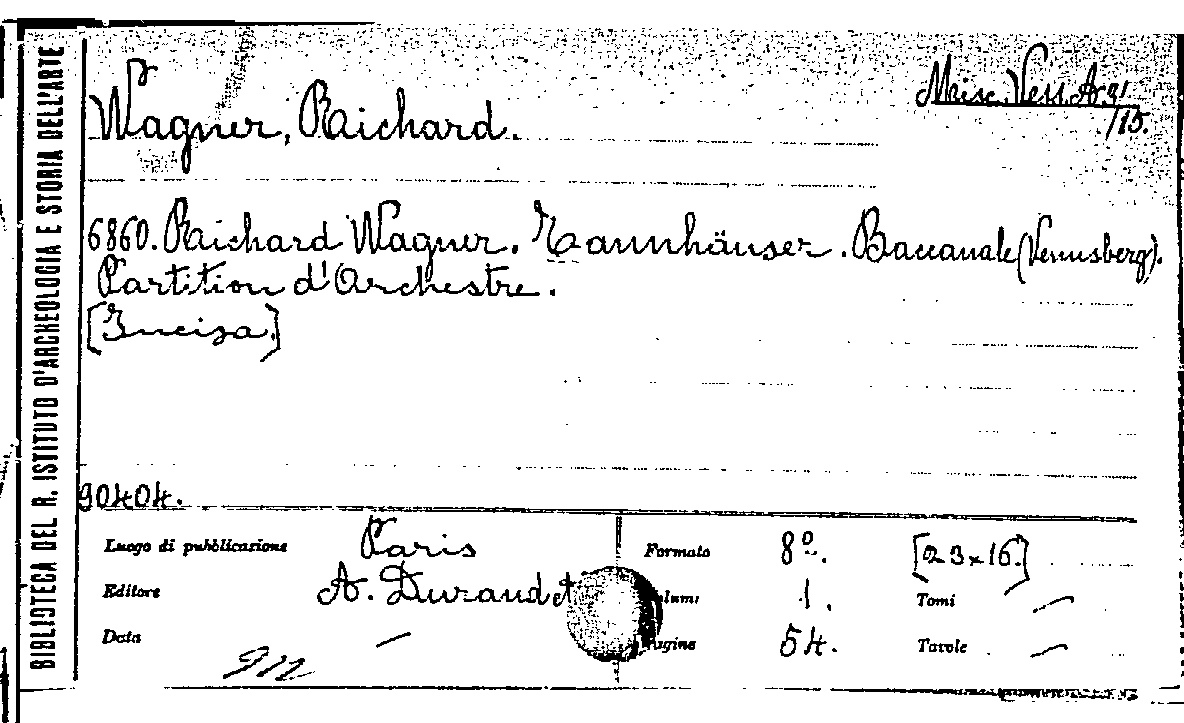 BIBLIOTECA DEL R. ISTITUTO D'ARCHEOLOGIA E STORIA DELL'ARTE
Misc. Vess. A. 91
/15.
Wagner, Richard.
6860. Richard Wagner. Tannhäuser. Baccanale (Venusberg).
Partition d'Orchestre.
[Incisa.]
90404.
Luogo di pubblicazione Paris Formato 8º. [23×16.]
Editore A. Durand et 1. Tomi —
Data — 54. Tavole —